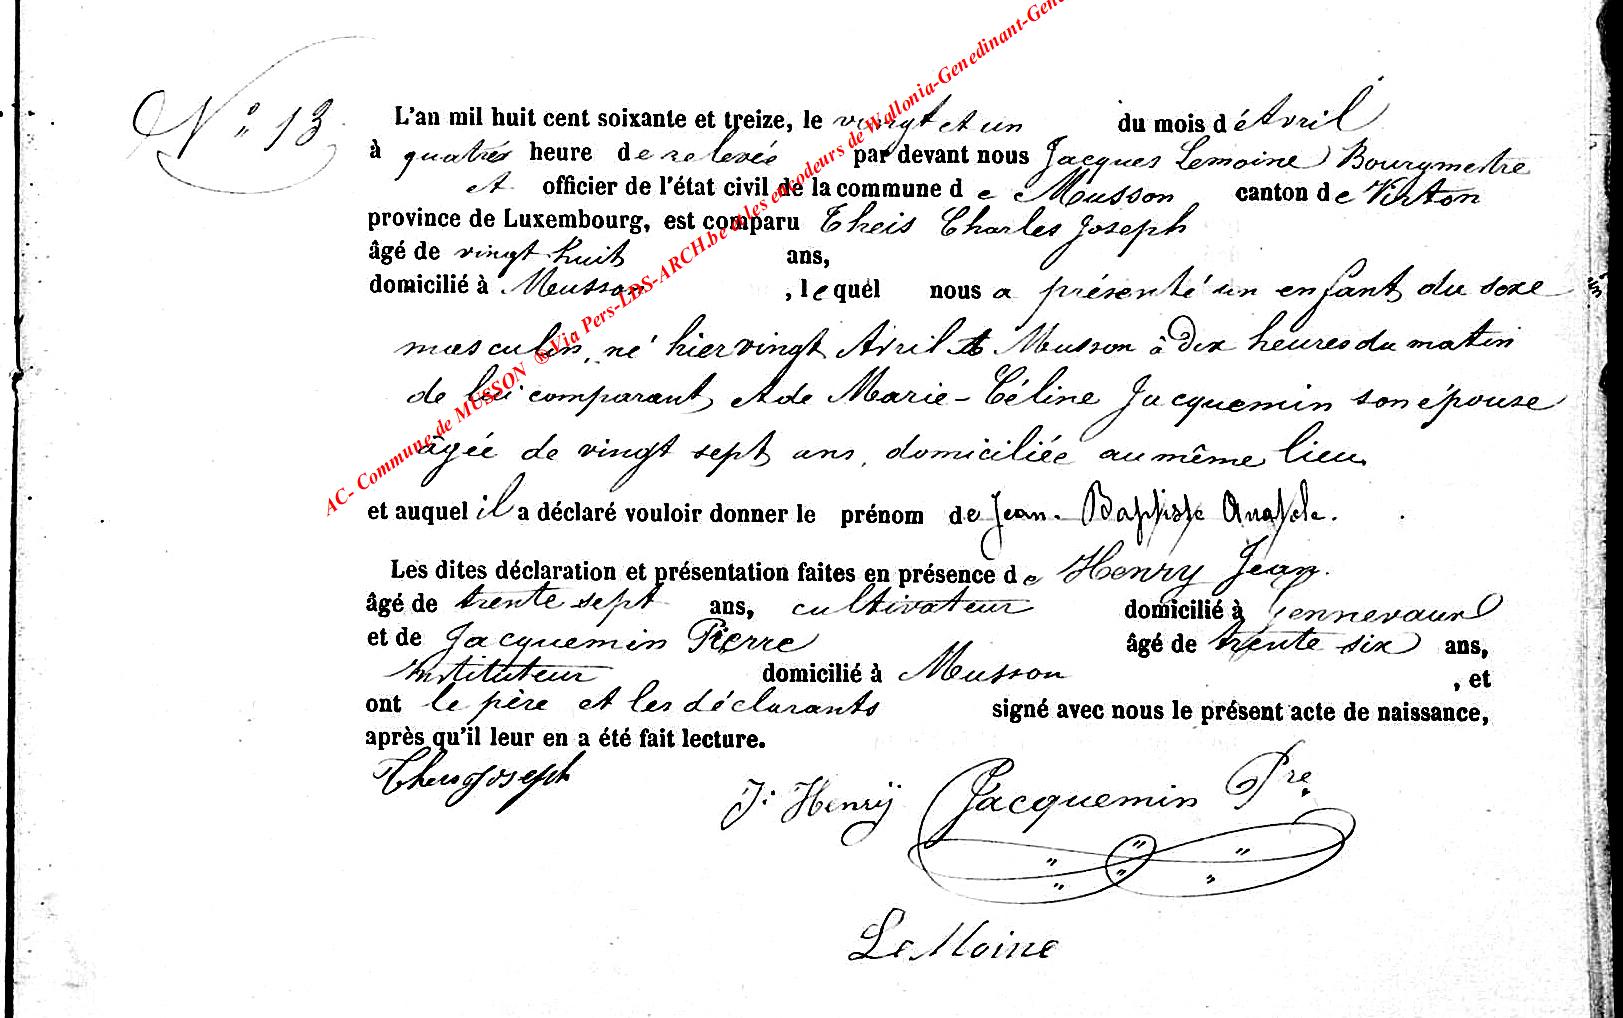 N° 13
L'an mil huit cent soixante et treize, le vingt et un du mois d'Avril
à quatres heure de relevée par devant nous Jacques Lemoine Bourgmestre
et officier de l'état civil de la commune de Musson canton de Virton
province de Luxembourg, est comparu Theis Charles Joseph
âgé de vingt huit ans,
domicilié à Musson, lequel nous a présenté un enfant du sexe
masculin, né hier vingt Avril à Musson à dix heures du matin
de lui comparant et de Marie-Céline Jacquemin son épouse
âgée de vingt sept ans, domiciliée au même lieu
et auquel il a déclaré vouloir donner le prénom de Jean-Baptiste Anatole.
Les dites déclaration et présentation faites en présence de Henry Jean.
âgé de trente sept ans, cultivateur domicilié à Gennevaux
et de Jacquemin Pierre âgé de trente six ans,
instituteur domicilié à Musson, et
ont le père et les déclarants signé avec nous le présent acte de naissance,
après qu'il leur en a été fait lecture.
Theis Joseph
J. Henrÿ Jacquemin Pre
LeMoine
AC- Commune de MUSSON ® Via Pers-LDS-ARCH.be et les encodeurs de Wallonia-Genedinant-Gene